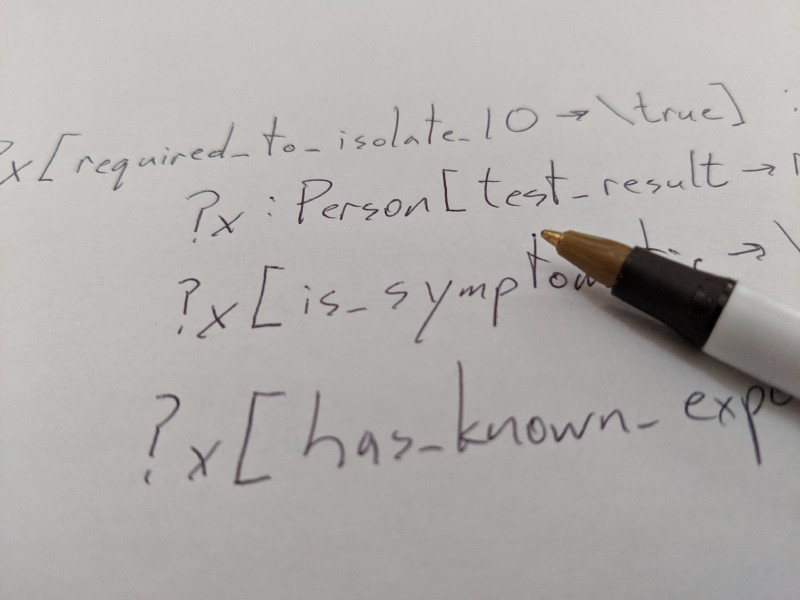 ?x[required_to_isolate_10 → \true] :
?x : Person[test_result →
?x[is_symptom → \
?x[has_known_exp